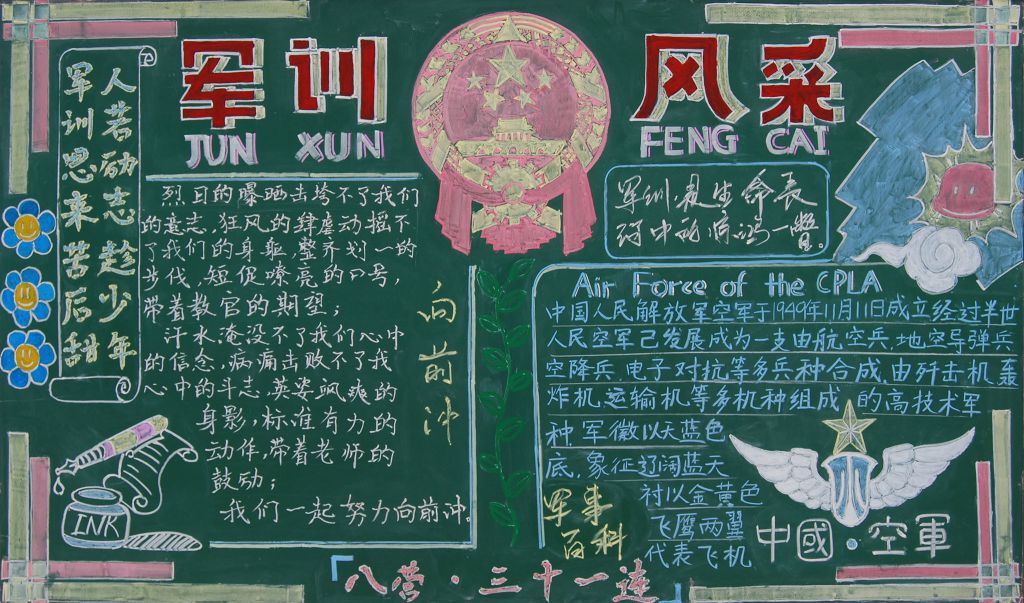 军训 风采
JUN XUN FENG CAI
人若励志趁少年
军训思来苦后甜
烈日的曝晒击垮不了我们
的意志,狂风的肆虐动摇不
了我们的身躯,整齐划一的
步伐,短促嘹亮的口号,
带着教官的期望;
汗水淹没不了我们心中
的信念,病痛击败不了我
心中的斗志,英姿飒爽的
身影,标准有力的
动作,带着老师的
鼓励;
我们一起努力向前冲。
INK
向前冲
军训,生命长
河中的惊鸿一瞥。
Air Force of the CPLA
中国人民解放军空军于1949年11月11日成立经过半世
人民空军已发展成为一支由航空兵,地空导弹兵
空降兵,电子对抗等多兵种合成,由歼击机轰
炸机,运输机,等多机种组成的高技术军
种军徽以天蓝色
底,象征辽阔蓝天
衬以金黄色
飞鹰两翼
代表飞机
军事
百科
中國·空軍
八营·三十一连